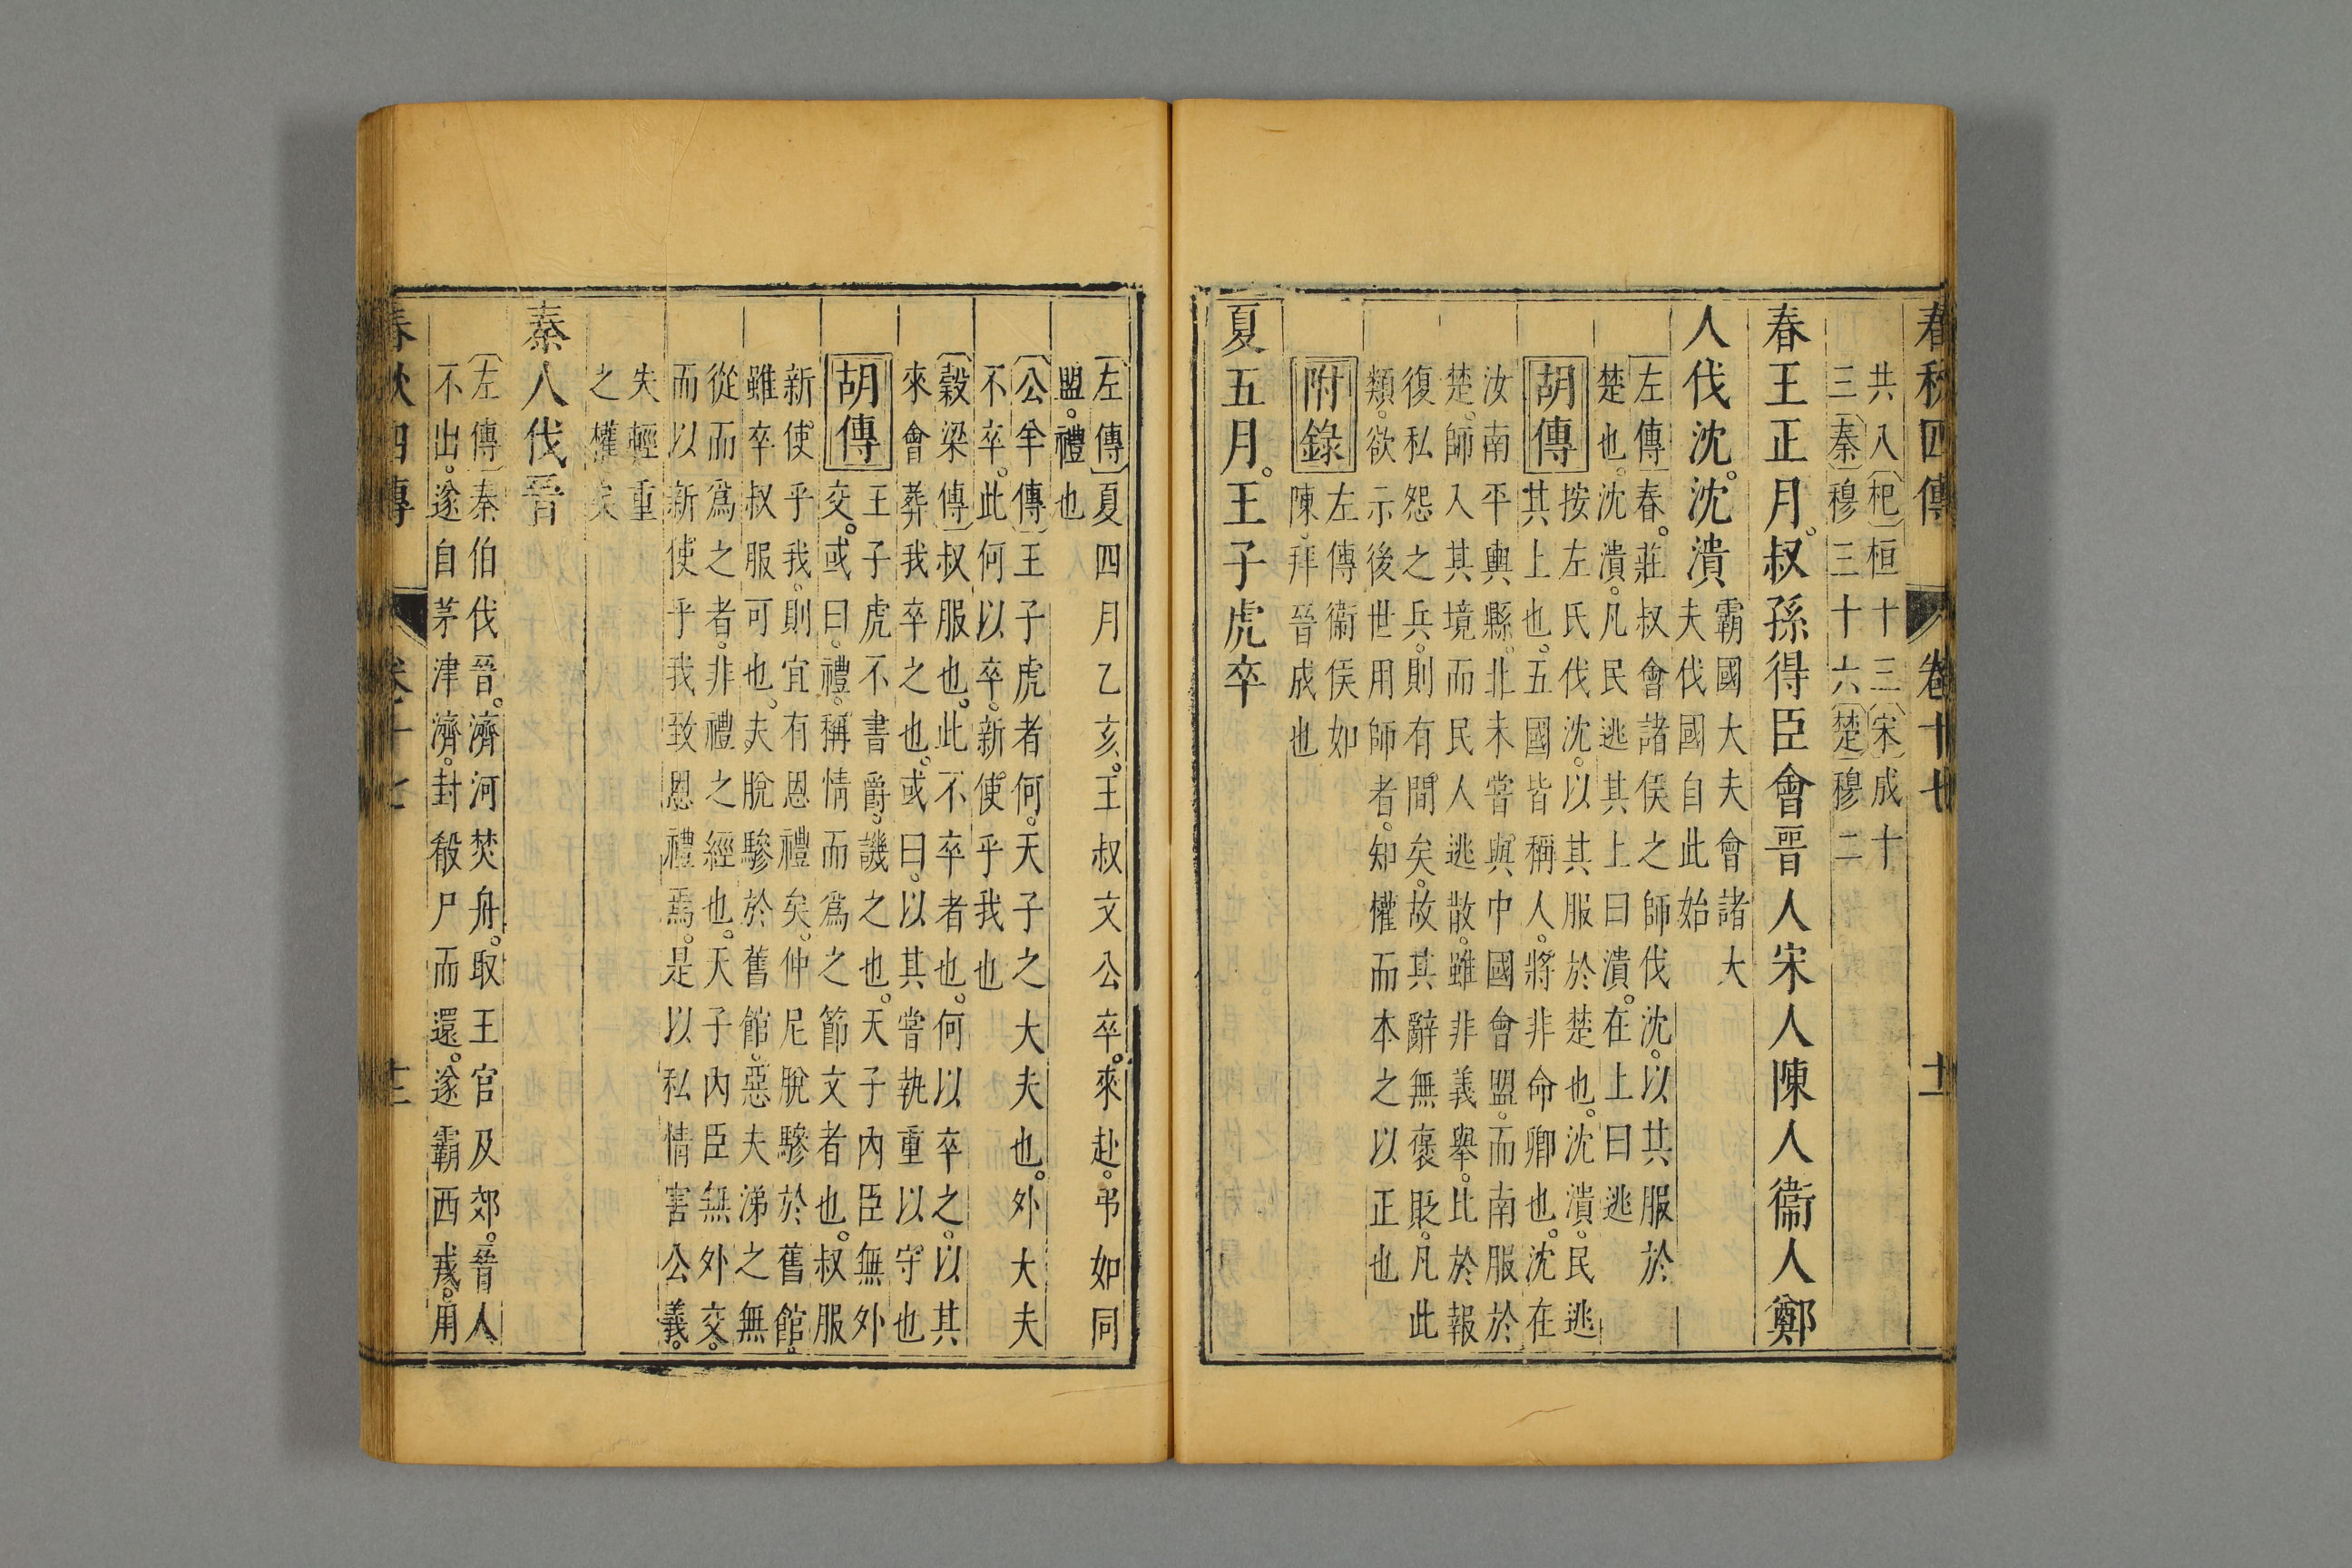 春秋四傳 卷十七 十二
共八〔杞〕桓十三〔宋〕成十
三〔秦〕穆三十六〔楚〕穆二
春王正月。叔孫得臣會晉人宋人陳人衞人鄭
人伐沈。沈潰
霸國大夫會諸大
夫伐國自此始
〔左傳〕春。莊叔會諸侯之師伐沈。以其服於
楚也。沈潰。凡民逃其上曰潰。在上曰逃
胡傳
按左氏伐沈。以其服於楚也。沈潰。民逃
其上也。五國皆稱人。將非命卿也。沈在
汝南平輿縣。北未嘗與中國會盟。而南服於
楚。師入其境而民人逃散。雖非義舉。比於報
復私怨之兵。則有間矣。故其辭無褒貶。凡此
類。欲示後世用師者。知權而本之以正也
附錄
左傳衞侯如
陳。拜晉成也
夏五月。王子虎卒
〔左傳〕夏四月乙亥。王叔文公卒。來赴。弔如同
盟。禮也
〔公羊傳〕王子虎者何。天子之大夫也。外大夫
不卒。此何以卒。新使乎我也
〔穀梁傳〕叔服也。此不卒者也。何以卒之。以其
來會葬我卒之也。或曰。以其嘗執重以守也
胡傳
王子虎不書爵。譏之也。天子內臣無外
交。或曰。禮。稱情而爲之節文者也。叔服
新使乎我。則宜有恩禮矣。仲尼脫驂於舊館。
雖卒叔服可也。夫脫驂於舊館。惡夫涕之無
從而爲之者。非禮之經也。天子內臣無外交。
而以新使乎我致恩禮焉。是以私情害公義。
失輕重
之權矣
秦人伐晉
〔左傳〕秦伯伐晉。濟河焚舟。取王官及郊。晉人
不出。遂自茅津濟。封殽尸而還。遂霸西戎。用
春秋四傳 卷十七 十三